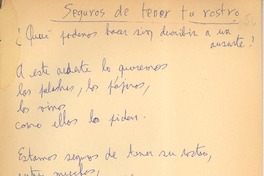 Seguros de tener tu rostro.
¿Qué podemos hacer sin describir a un
ausente?
A este ausente lo queremos
los palabras, los pájaros,
los vinos
como ellos lo piden.
Estamos seguros de tener su rostro,
entre muchos,